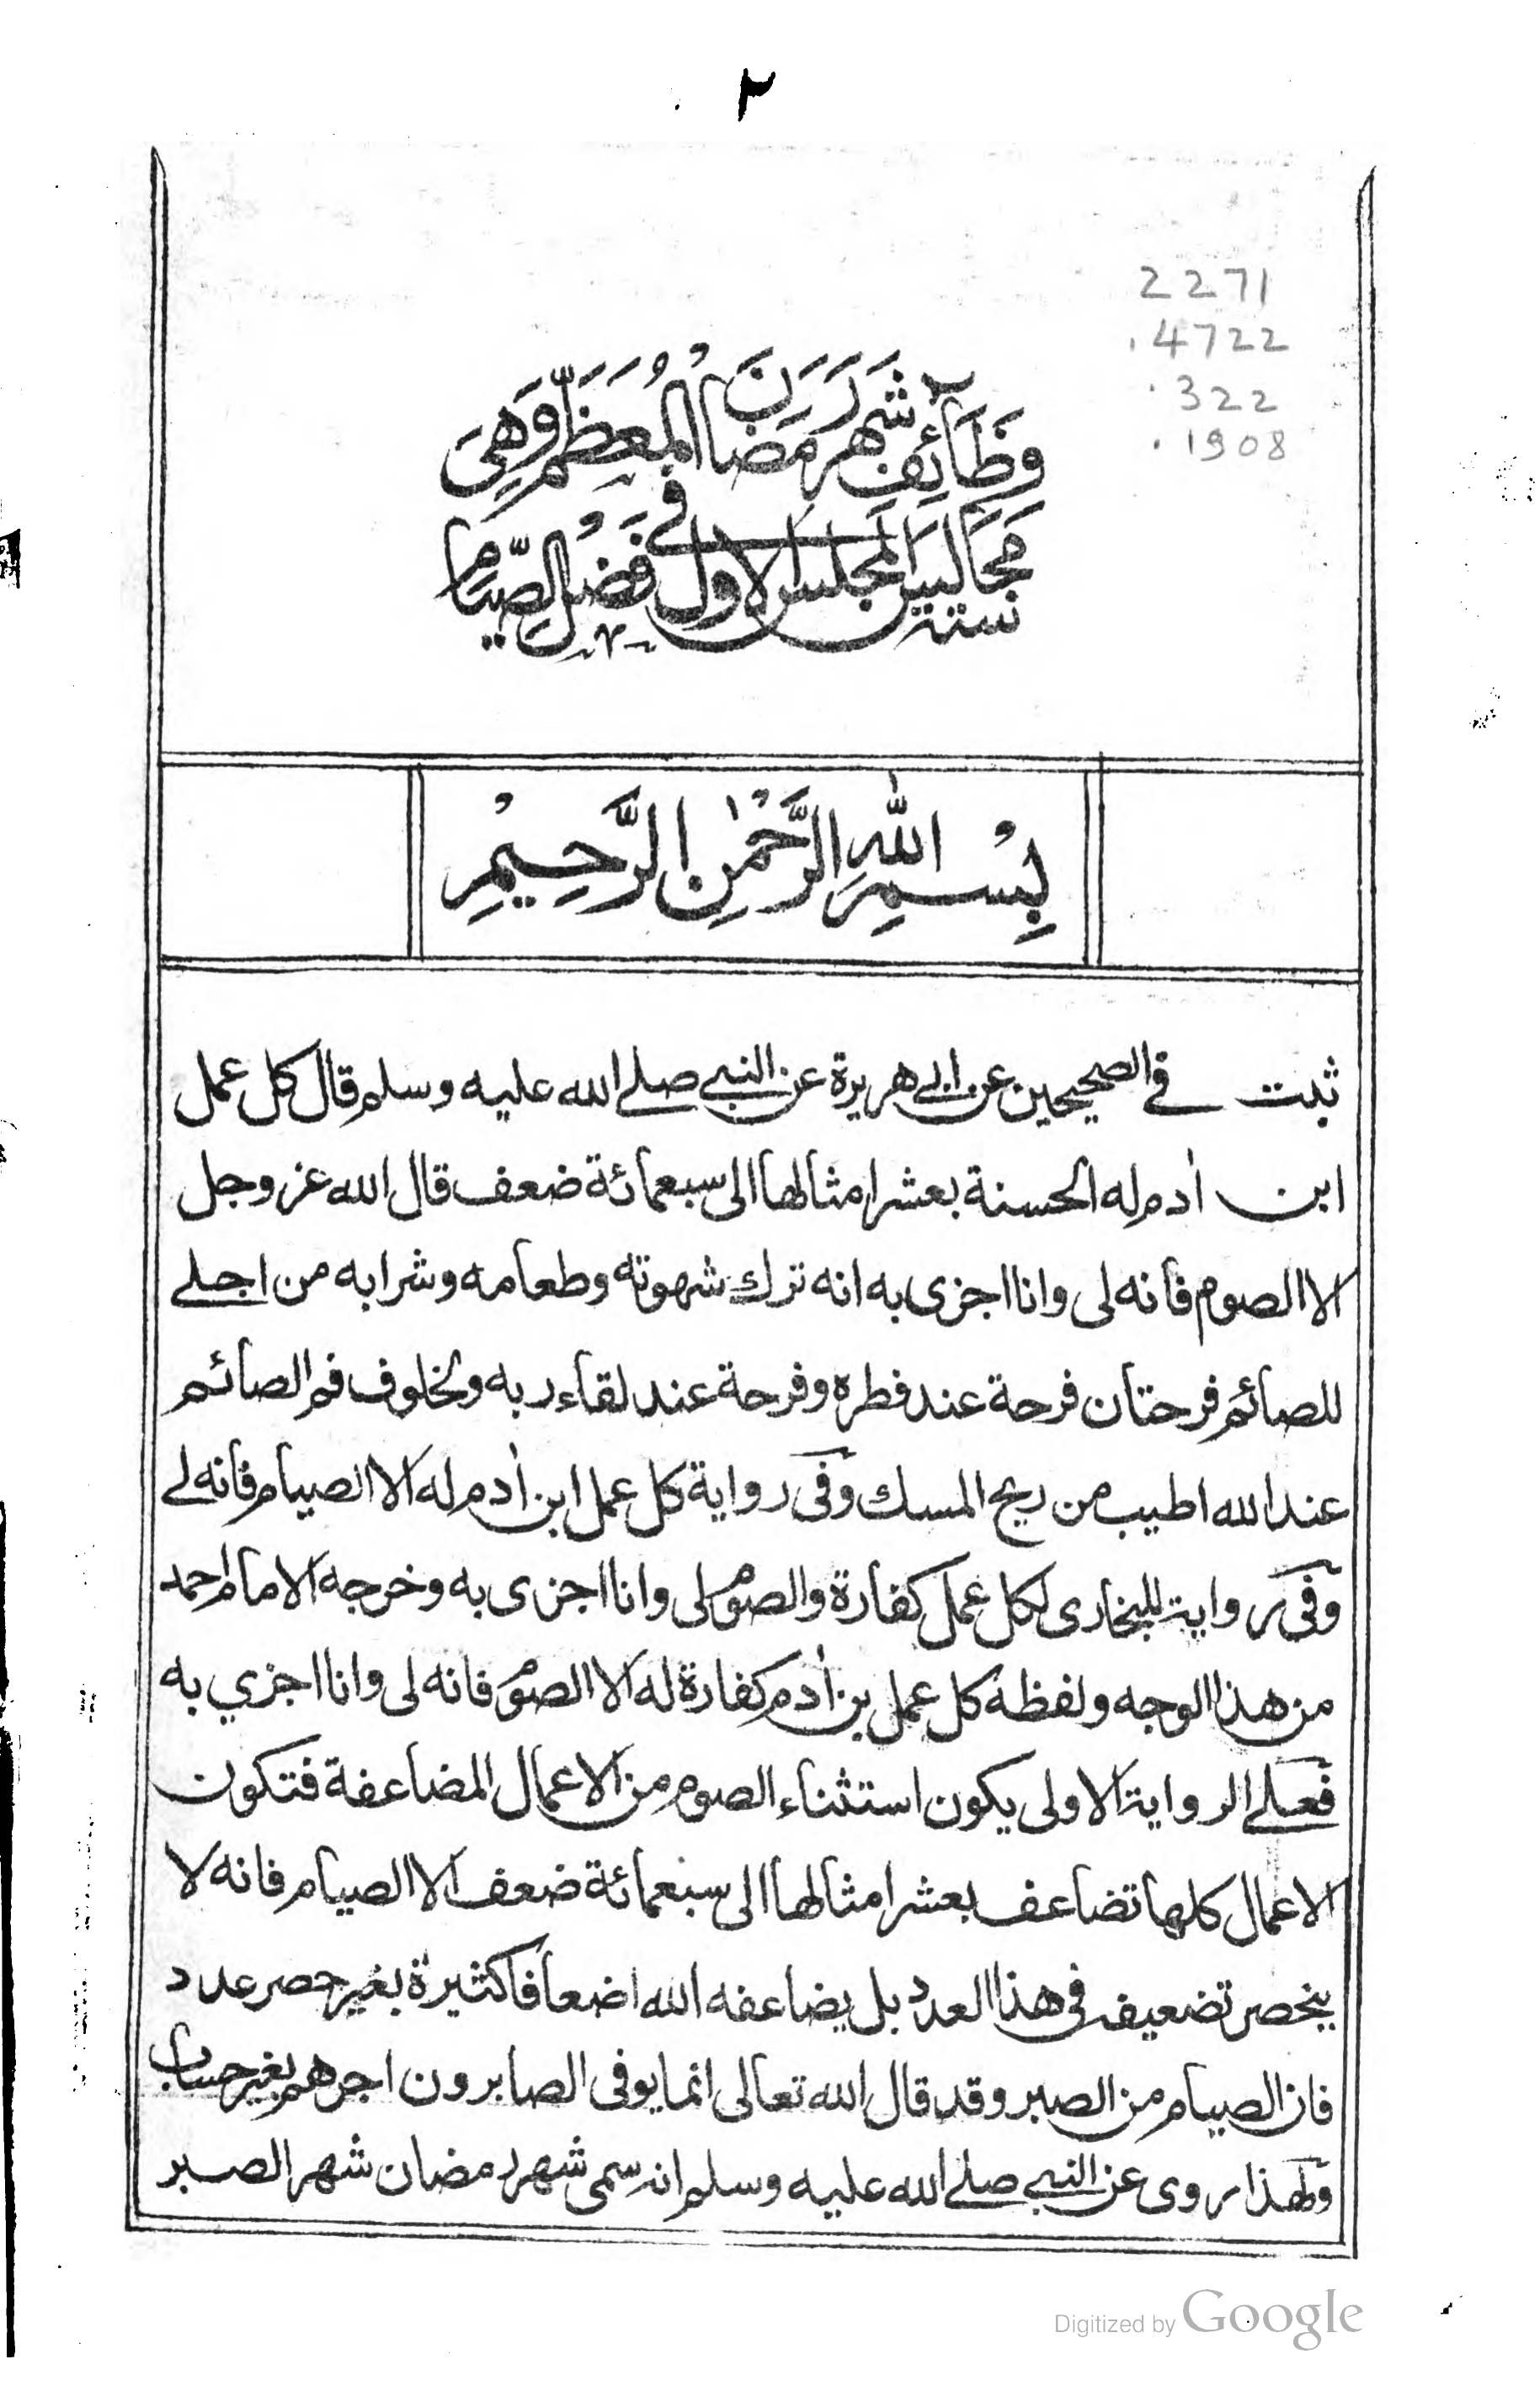 ٢
2271
.4722
.322
.1908
وَظَآئِفِ شَهْرِ رَمَضَانَ المُعَظَّمْ وَهِيَ
سِتَّة مَجَالِس المَجلِسُ الاول فى فَضْلِ الصِّيَام
بِسْمِ اللهِ الرَّحْمٰنِ الرَّحِيمِ
ثبت في الصحيحين عن ابي هريرة عن النبي صلى الله عليه وسلم قال كل عمل
ابن اٰدم له الحسنة بعشر امثالها الى سبعمائة ضعف قال الله عز وجل
الا الصوم فانه لى وانا اجزى به انه ترك شهوته وطعامه وشرابه من اجلي
للصائم فرحتان فرحة عند فطره وفرحة عند لقاء ربه ولخلوف فم الصائم
عند الله اطيب من ريح المسك وفى رواية كل عمل ابن اٰدم له الا الصيام فانه لي
وفى رواية للبخارى لكل عمل كفارة والصوم لى وانا اجزى به وخرجه الامام احمد
من هذا الوجه ولفظه كل عمل بن اٰدم كفارة له الا الصوم فانه لى وانا اجزي به
فعلى الرواية الاولى يكون استثناء الصوم من الاعمال المضاعفة فتكون
الاعمال كلها تضاعف بعشر امثالها الى سبعمائة ضعف الا الصيام فانه لا
ينحصر تضعيفه فى هذا العدد بل يضاعفه الله اضعافا كثيرة بغير حصر عدد
فان الصيام من الصبر وقد قال الله تعالى انما يوفى الصابرون اجرهم بغير حساب
ولهذا روى عن النبي صلى الله عليه وسلم انه سمى شهر رمضان شهر الصبر
Digitized by Google